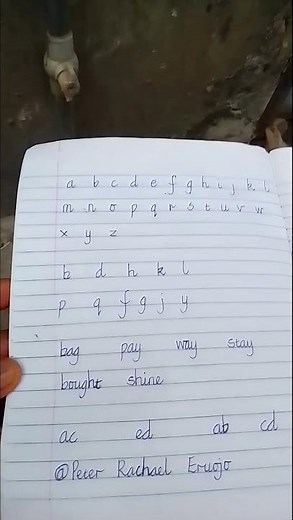 a b c d e f g h i j k l
m n o p q r s t u v w
x y z
b d h k l
p q f g j y
bag pay way stay
bought shine
ac ed ab cd
@Peter Rachael Eruojo